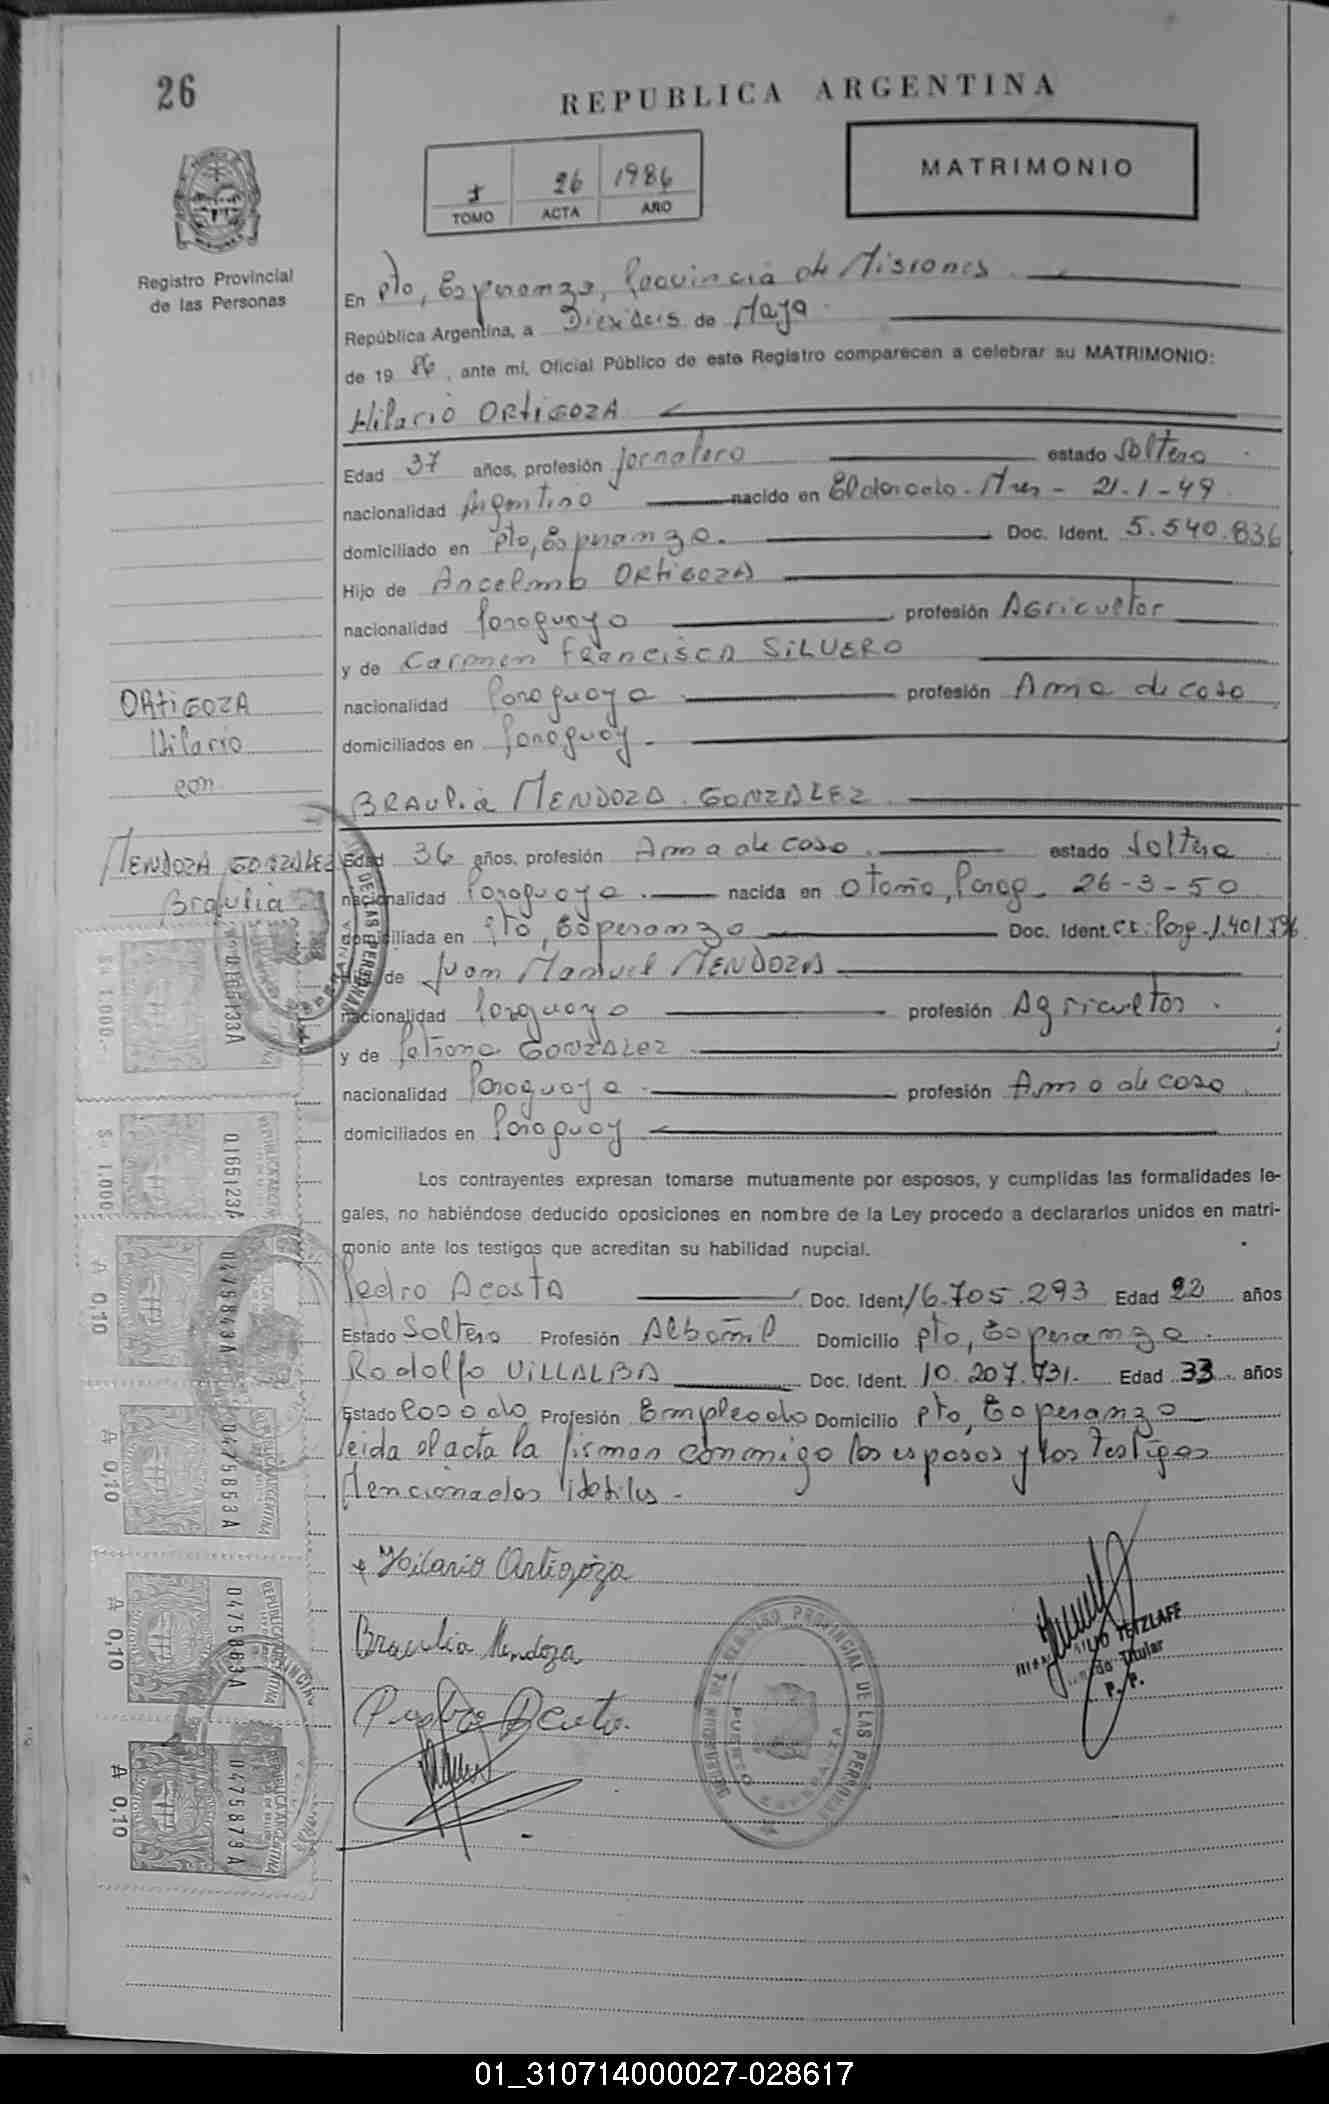 26
REPUBLICA ARGENTINA
MATRIMONIO
I 26 1986
TOMO ACTA AÑO
Registro Provincial
de las Personas
En Pto, Esperanza, Provincia de Misiones
República Argentina, a Dieciseis de Mayo
de 19 86, ante mí, Oficial Público de este Registro comparecen a celebrar su MATRIMONIO:
Hilario ORTIGOZA
Edad 37 años, profesión Jornalero estado Soltero
nacionalidad Argentino nacido en Eldorado - Mnes - 21-1-49
domiciliado en Pto, Esperanza. Doc. Ident. 5.540.836
Hijo de Ancelmo ORTIGOZA
nacionalidad Paraguayo profesión Agricultor
y de Carmen Francisca SILVERO
nacionalidad Paraguaya profesión Ama de casa
domiciliados en Paraguay
ORTIGOZA
Hilario
con
MENDOZA GONZALEZ
Braulia
BRAULIA MENDOZA GONZALEZ
Edad 36 años, profesión Ama de casa estado Soltera
nacionalidad Paraguaya nacida en Otoño, Parag. 26-3-50
domiciliada en Pto, Esperanza Doc. Ident. CI. Parg. 1.401.
de Juan Manuel MENDOZA
nacionalidad Paraguayo profesión Agricultor
y de Petrona GONZALEZ
nacionalidad Paraguaya profesión Ama de casa
domiciliados en Paraguay
Los contrayentes expresan tomarse mutuamente por esposos, y cumplidas las formalidades le-
gales, no habiéndose deducido oposiciones en nombre de la Ley procedo a declararlos unidos en matri-
monio ante los testigos que acreditan su habilidad nupcial.
Pedro Acosta Doc. Ident 16.705.293 Edad 22 años
Estado Soltero Profesión Albañil Domicilio Pto, Esperanza
Rodolfo VILLALBA Doc. Ident. 10.207.731. Edad 33 años
Estado Casado Profesión Empleado Domicilio Pto, Esperanza
Leida el acta la firman conmigo los esposos y los testigos
Mencionados
Hilario Ortigoza
Braulia Mendoza
TETZLAFF
Titular
P. P.
REGISTRO PROVINCIAL DE LAS PERSONAS
PUERTO ESPERANZA
DE LAS PERSONAS
$ 1.000.-
0165133A
$ 1.000
0165123A
REPUBLICA ARGENTINA
A 0,10
0475843A
A 0,10
0475853A
REPUBLICA ARGENTINA
A 0,10
0475863A
REPUBLICA ARGENTINA
A 0,10
0475873A
REPUBLICA ARGENTINA
01_310714000027-028617